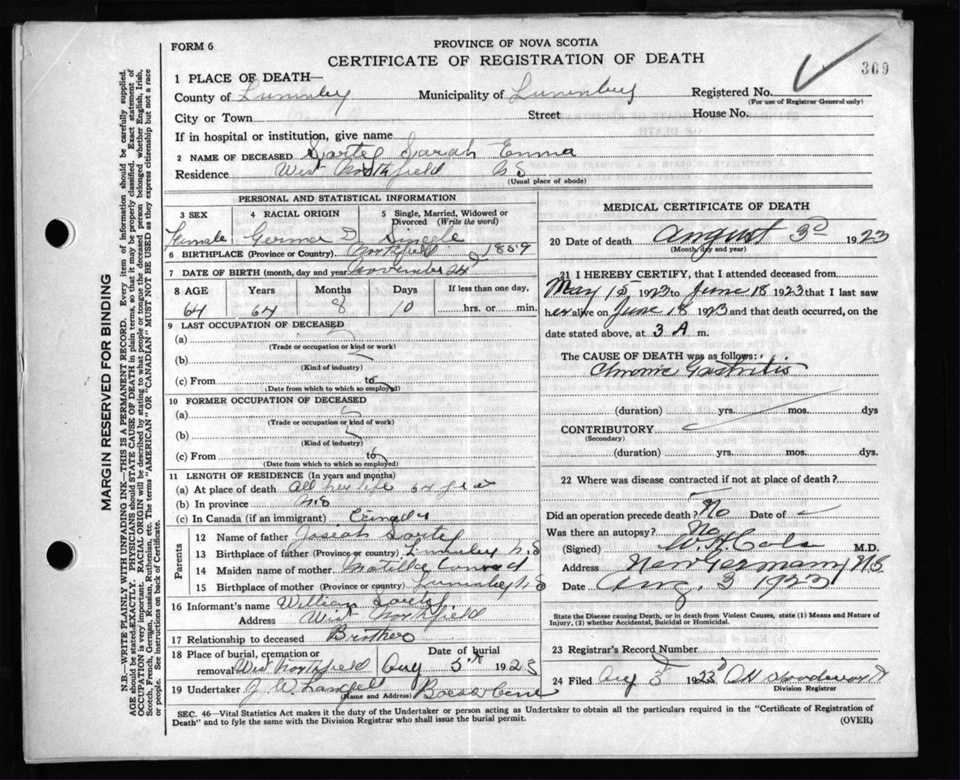 FORM 6
PROVINCE OF NOVA SCOTIA
CERTIFICATE OF REGISTRATION OF DEATH
369
1 PLACE OF DEATH—
County of Lunenburg Municipality of Lunenburg Registered No.
(For use of Registrar General only)
City or Town Street House No.
If in hospital or institution, give name
2 NAME OF DECEASED Sarah Emma
Residence West Northfield N S
(Usual place of abode)
PERSONAL AND STATISTICAL INFORMATION
3 SEX 4 RACIAL ORIGIN 5 Single, Married, Widowed or Divorced (Write the word)
Female German Single
6 BIRTHPLACE (Province or Country) Northfield
7 DATE OF BIRTH (month, day and year) November 24 1859
8 AGE Years Months Days If less than one day,
64 64 8 10 hrs. or min.
9 LAST OCCUPATION OF DECEASED
(a)
(Trade or occupation or kind or work)
(b)
(Kind of industry)
(c) From to
(Date from which to which so employed)
10 FORMER OCCUPATION OF DECEASED
(a)
(Trade or occupation or kind of work)
(b)
(Kind of industry)
(c) From to
(Date from which to which so employed)
11 LENGTH OF RESIDENCE (In years and months)
(a) At place of death all her life 64
(b) In province N.S
(c) In Canada (if an immigrant) Canada
Parents
12 Name of father Josiah
13 Birthplace of father (Province or country) N.S
14 Maiden name of mother Matilda Conrad
15 Birthplace of mother (Province or country) N S
16 Informant's name William
Address West Northfield
17 Relationship to deceased Brother
18 Place of burial, cremation or removal West Northfield
Date of burial Aug 5th 1923
19 Undertaker J. W.
(Name and Address)
MEDICAL CERTIFICATE OF DEATH
20 Date of death August 3rd 1923
(Month, day and year)
21 I HEREBY CERTIFY, that I attended deceased from
May 15 1923 to June 18 1923 that I last saw
her alive on June 18 1923 and that death occurred, on the
date stated above, at 3 A m.
The CAUSE OF DEATH was as follows:
Chronic Gastritis
(duration) yrs. mos. dys
CONTRIBUTORY
(Secondary)
(duration) yrs. mos. dys.
22 Where was disease contracted if not at place of death?
Did an operation precede death? No Date of
Was there an autopsy? No
(Signed) M.D.
Address New Germany N S
Date Aug. 3 1923
State the Disease causing Death, or in death from Violent Causes, state (1) Means and Nature of
Injury, (2) whether Accidental, Suicidal or Homicidal.
23 Registrar's Record Number
24 Filed Aug 1923
Division Registrar
SEC. 46—Vital Statistics Act makes it the duty of the Undertaker or person acting as Undertaker to obtain all the particulars required in the "Certificate of Registration of
Death" and to fyle the same with the Division Registrar who shall issue the burial permit. (OVER)
MARGIN RESERVED FOR BINDING
N.B.—WRITE PLAINLY WITH UNFADING INK—THIS IS A PERMANENT RECORD. Every item of information should be carefully supplied.
AGE should be stated EXACTLY. PHYSICIANS should STATE CAUSE OF DEATH in plain terms, so that it may be properly classified. Exact statement of
OCCUPATION is very important. RACIAL ORIGIN will be described by stating to what people or tongue the deceased person belonged whether English, Irish,
Scotch, French, German, Russian, Ruthenian, etc. The terms "AMERICAN" OR "CANADIAN" MUST NOT BE USED as they express citizenship but not a race
or people. See instructions on back of Certificate.